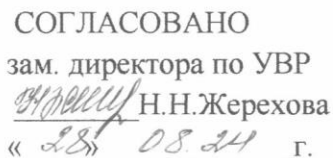 СОГЛАСОВАНО
зам. директора по УВР
Н.Н.Жерехова
« 28» 08.24 г.